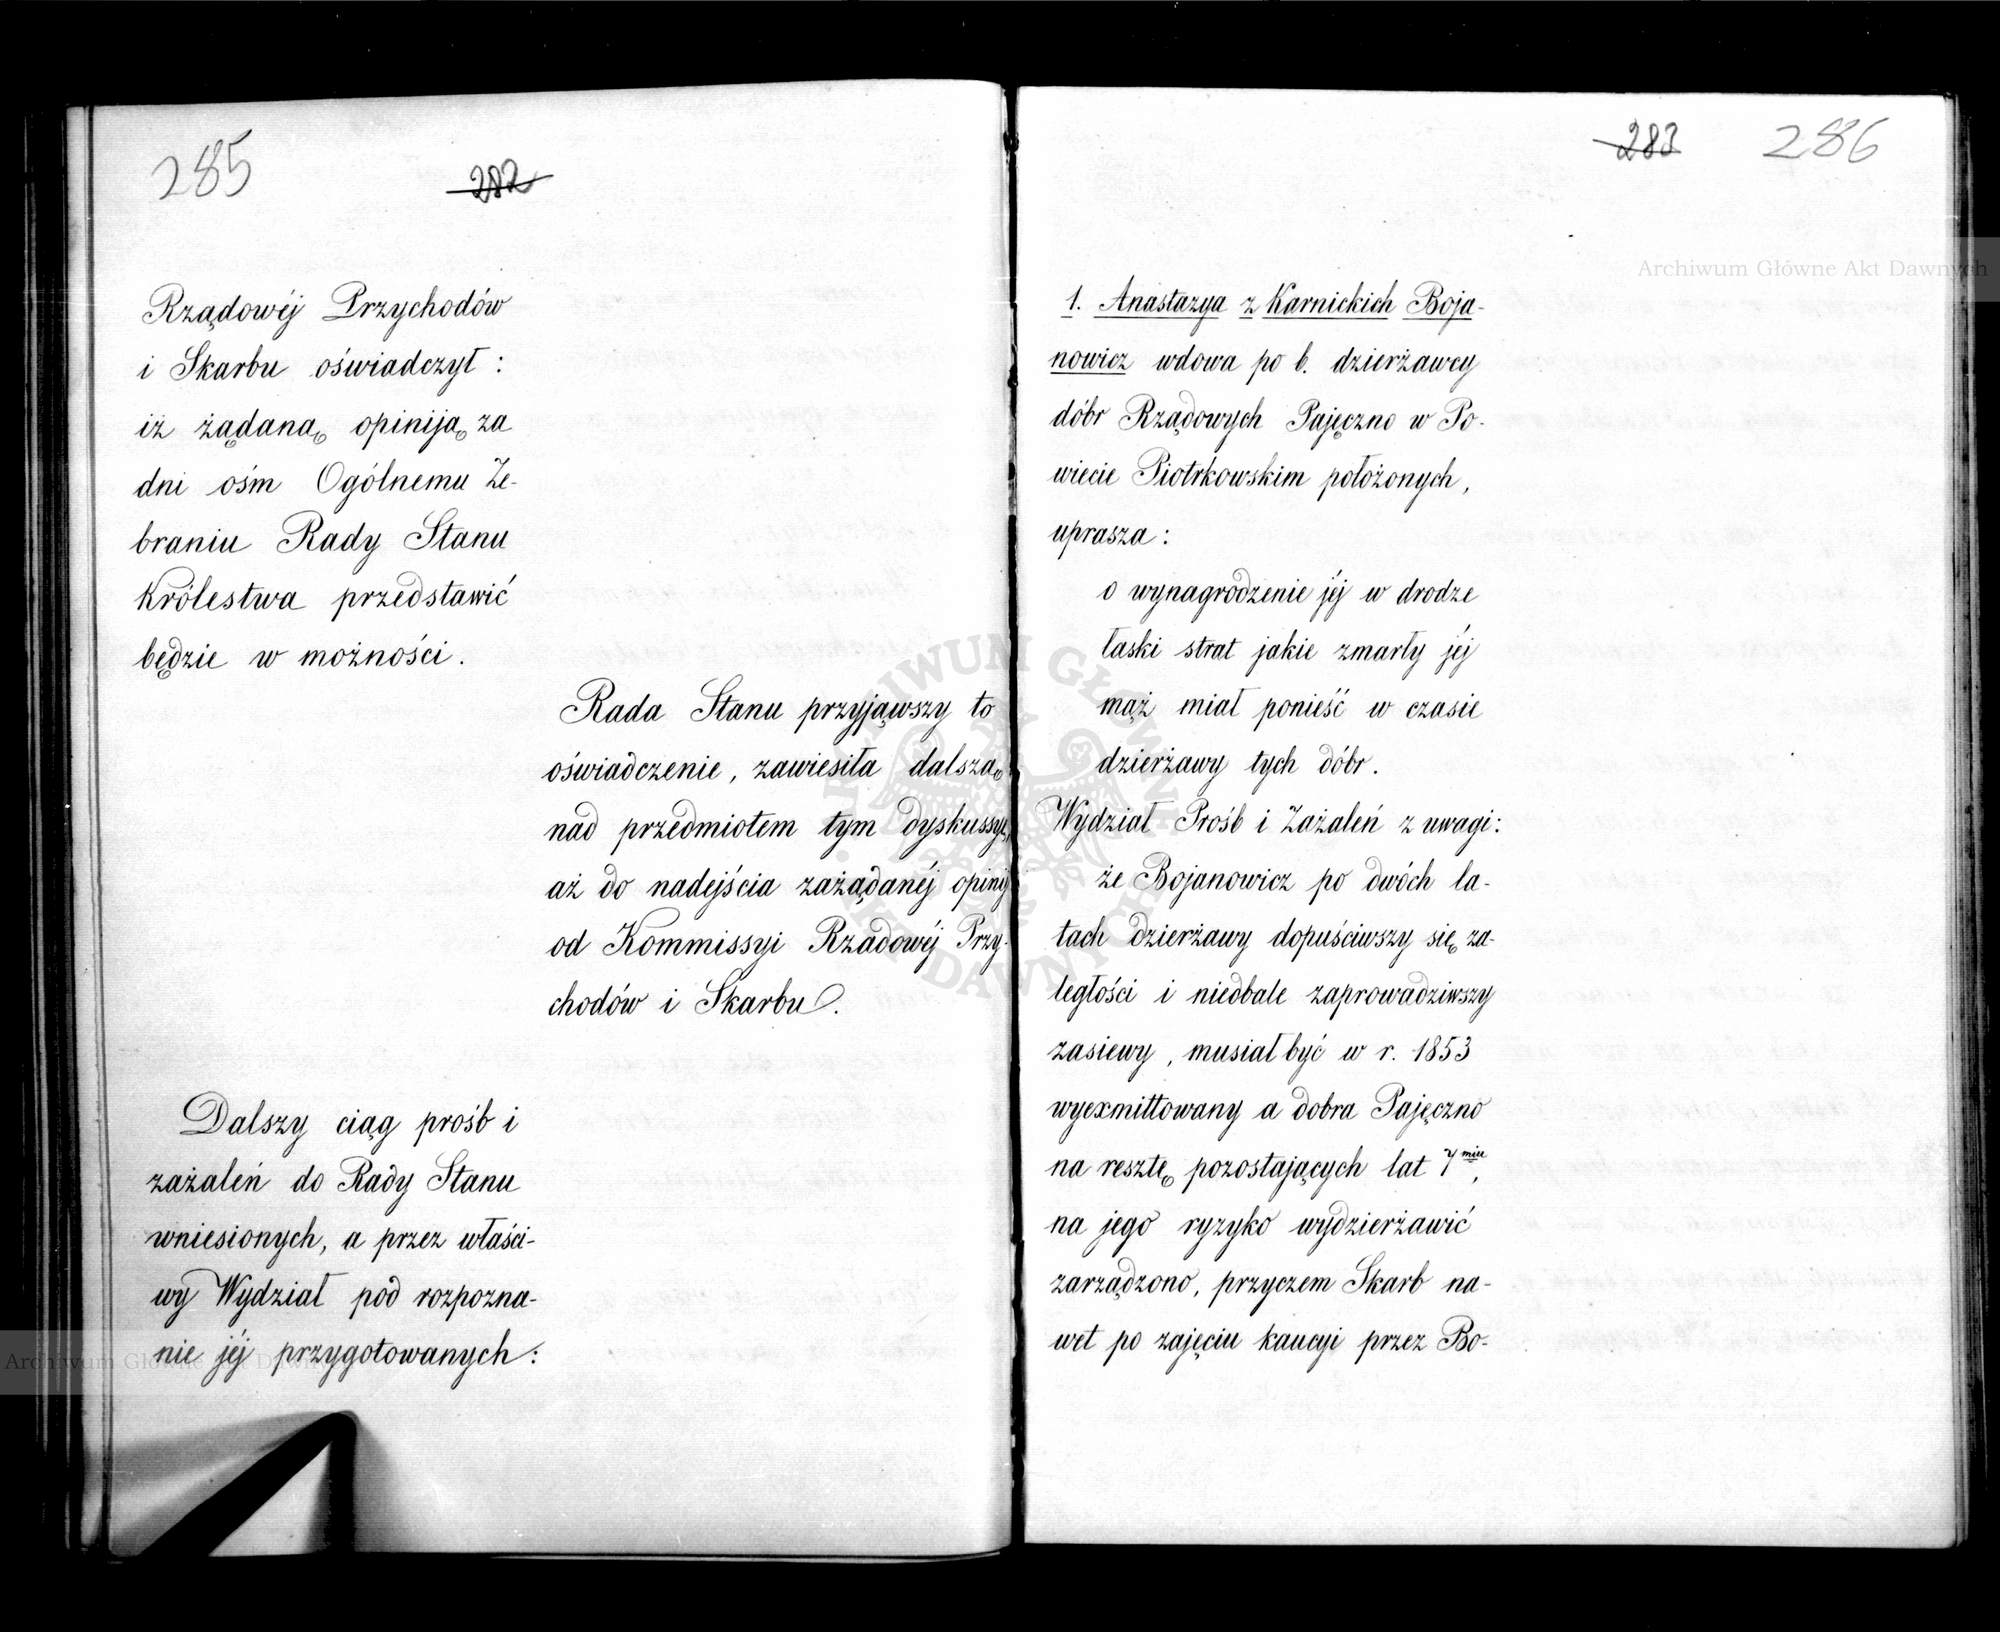 285
282
Rządowéj Przychodów
i Skarbu oświadczył:
iż żądaną opiniją za
dni ośm Ogólnemu Ze-
braniu Rady Stanu
Królestwa przedstawić
będzie w możności.
Rada Stanu przyjąwszy to
oświadczenie, zawiesiła dalszą
nad przedmiotem tym dyskussyę,
aż do nadejścia zażądanéj opinij
od Kommissyi Rządowéj Przy-
chodów i Skarbu.
Dalszy ciąg prośb i
zażaleń do Rady Stanu
wniesionych, a przez właści-
wy Wydział pod rozpozna-
nie jéj przygotowanych:
283
286
1. Anastazya z Karnickich Boja-
nowicz wdowa po b. dzierżawcy
dóbr Rządowych Pajęczno w Po-
wiecie Piotrkowskim położonych,
uprasza:
o wynagrodzenie jéj w drodze
łaski strat jakie zmarły jéj
mąż miał ponieść w czasie
dzierżawy tych dóbr.
Wydział Prośb i Zażaleń z uwagi:
że Bojanowicz po dwóch la-
tach dzierżawy dopuściwszy się za-
ległości i niedbale zaprowadziwszy
zasiewy, musiał być w r. 1853
wyexmittowany a dobra Pajęczno
na resztę pozostających lat 7miu,
na jego ryzyko wydzierżawić
zarządzono, przyczem Skarb na-
wet po zajęciu kaucyi przez Bo-
Archiwum Główne Akt Dawnych
Archiwum Główne Akt Dawnych
ARCHIWUM GŁÓWNE AKT DAWNYCH